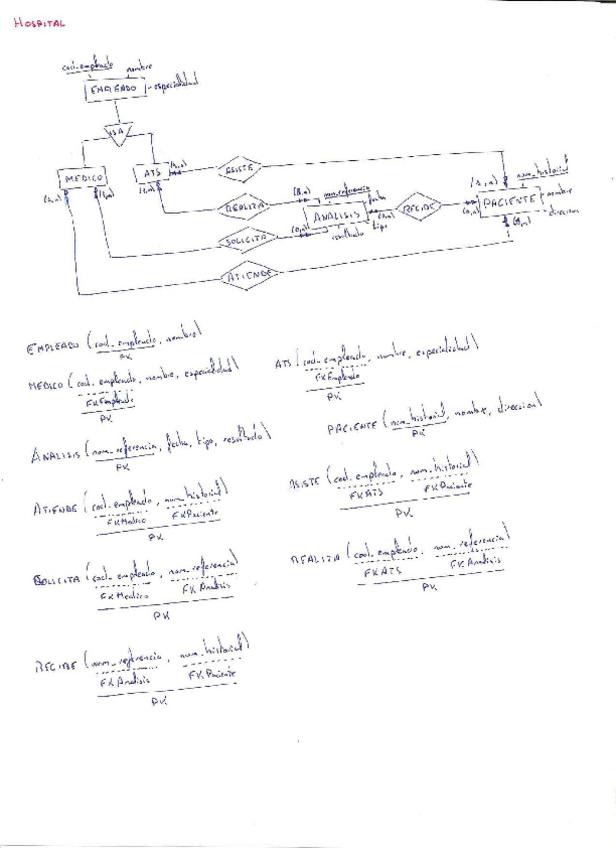 HOSPITAL
cod_empleado nombre
EMPLEADO especialidad
ISA
MEDICO ATS (1,n) ASISTE (1,n) num_historial
(1,n) (1,n) (1,n) REALIZA (0,n) num_referencia fecha
ANALISIS (0,n) RECIBE (0,n) PACIENTE nombre
direccion
SOLICITA (0,n) resultado tipo
ATIENDE
EMPLEADO (cod_empleado, nombre)
PK
ATS (cod_empleado, nombre, especialidad)
FKEmpleado
PK
MEDICO (cod_empleado, nombre, especialidad)
FKEmpleado
PK
PACIENTE (num_historial, nombre, direccion)
PK
ANALISIS (num_referencia, fecha, tipo, resultado)
PK
ASISTE (cod_empleado, num_historial)
FKATS FKPaciente
PK
ATIENDE (cod_empleado, num_historial)
FKMedico FKPaciente
PK
REALIZA (cod_empleado, num_referencia)
FKATS FKAnalisis
PK
SOLICITA (cod_empleado, num_referencia)
FKMedico FKAnalisis
PK
RECIBE (num_referencia, num_historial)
FKAnalisis FKPaciente
PK